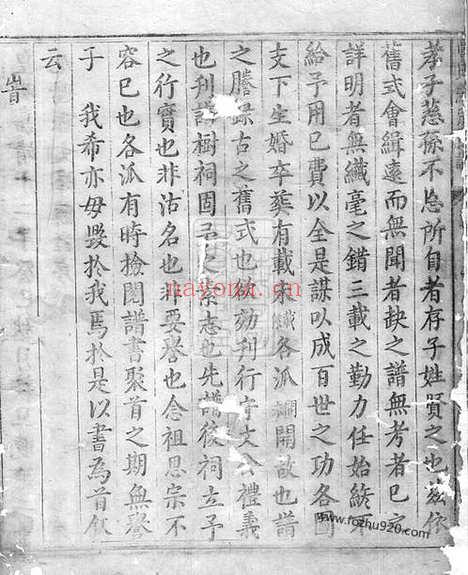 孝子慈孫不忘所自者存子姓賢之也茲依
舊式會緝遠而無聞者缺之譜無考者已之
詳明者無纖毫之錯三載之勤力任始終不
給予用已費以全是謀以成百世之功各圖
支下生婚卒葬有載 各派 開啟也譜
之謄錄古之舊式也 効刊行守文公禮義
也刊譜樹祠固吾之素志也先譜後祠立予
之行實也非沽名也非要譽也念祖思宗不
容已也各派有時撿閱譜書聚首之期無譽
子 我希亦毋毀於我焉於是以書為首欤
云
旹
nayona.cn
www.fozhu920.com